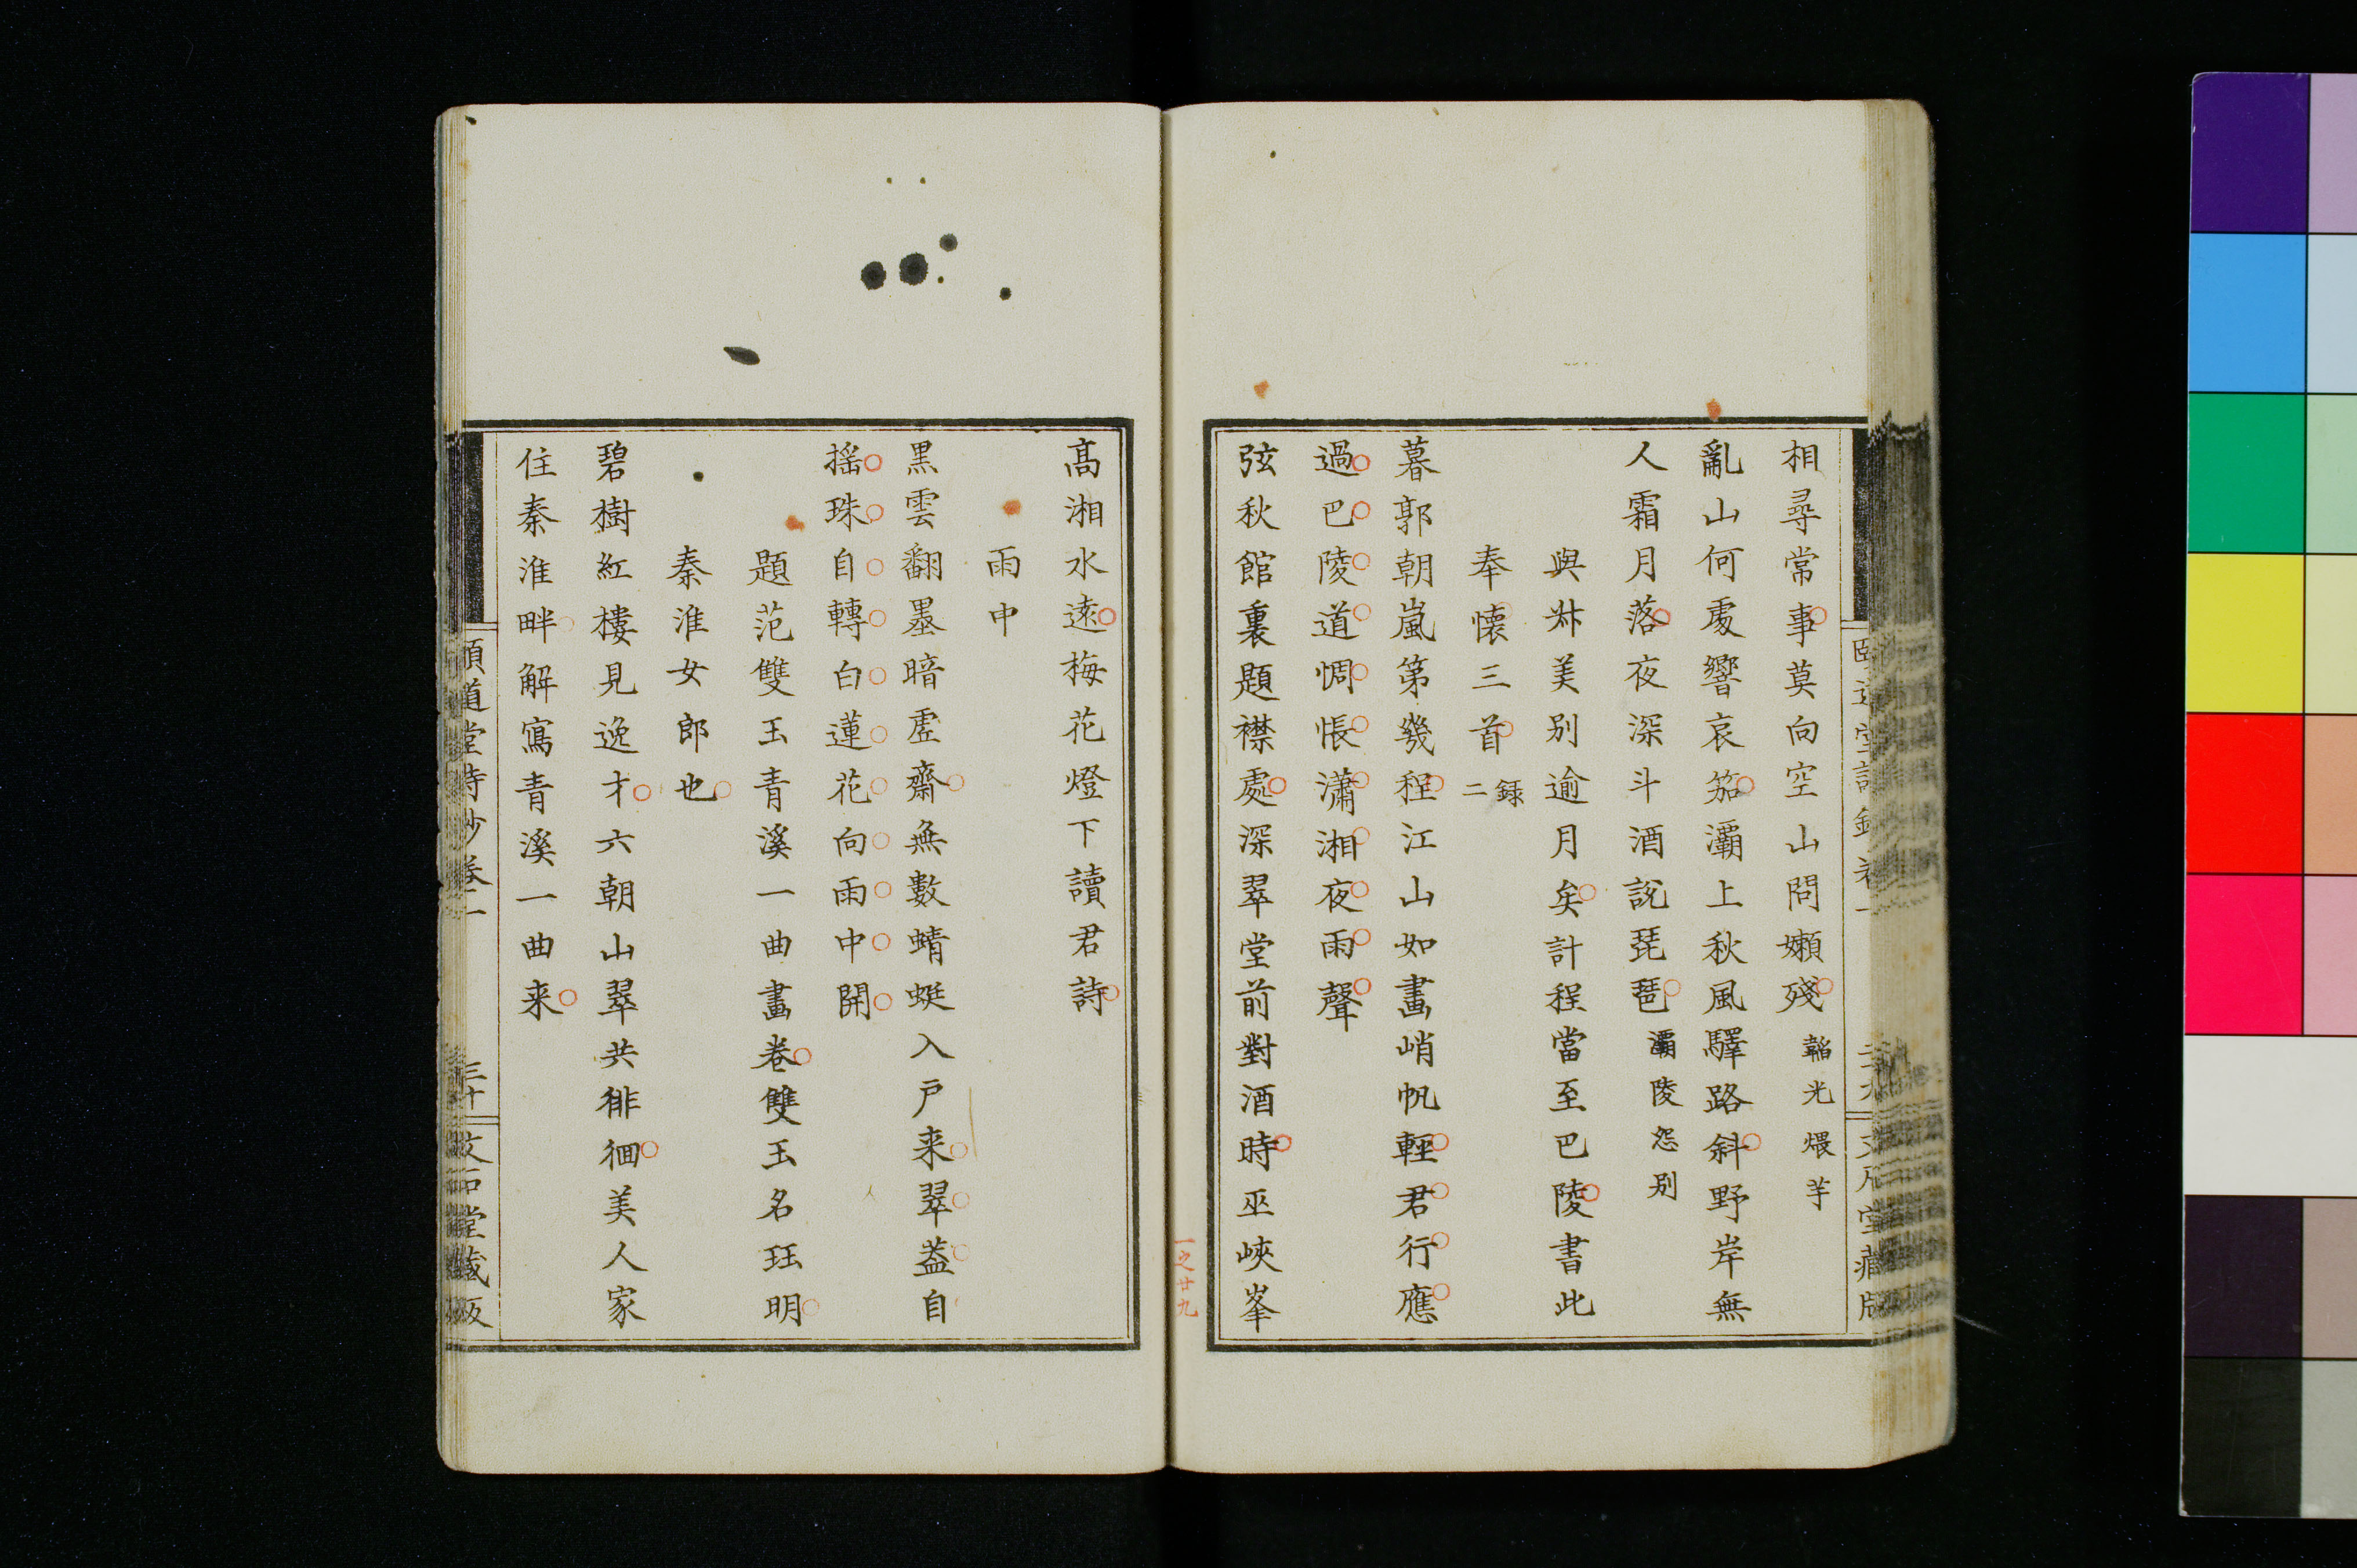 相尋常事莫向空山問嬾殘 韜光煨芋
亂山何處響哀笳灞上秋風驛路斜野岸無
人霜月落夜深斗酒說琵琶 灞陵怨別
與尗美別逾月矣計程當至巴陵書此
奉懷三首 錄二
暮郭朝嵐第幾程江山如畫峭帆輕君行應
過巴陵道惆悵瀟湘夜雨聲
弦秋館裏題襟處深翠堂前對酒時巫峽峯
一之廿九
高湘水遠梅花燈下讀君詩
雨中
黑雲翻墨暗虛齋無數蜻蜓入戸来翠葢自
搖珠自轉白蓮花向雨中開
題范雙玉青溪一曲畫卷雙玉名珏明
秦淮女郎也
碧樹紅樓見逸才六朝山翠共徘徊美人家
住秦淮畔解寫青溪一曲来
頤道堂詩鈔卷一
三十
文石堂藏板